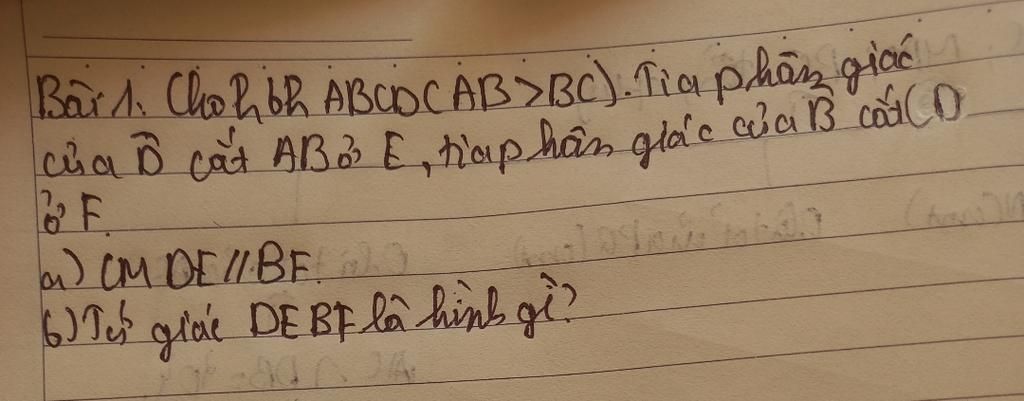 Bài 1: Cho hbh ABCD (AB > BC). Tia phân giác
của D̂ cắt AB ở E, tia phân giác của B̂ cắt CD
ở F.
a) CM DE // BF.
b) Tứ giác DEBF là hình gì?